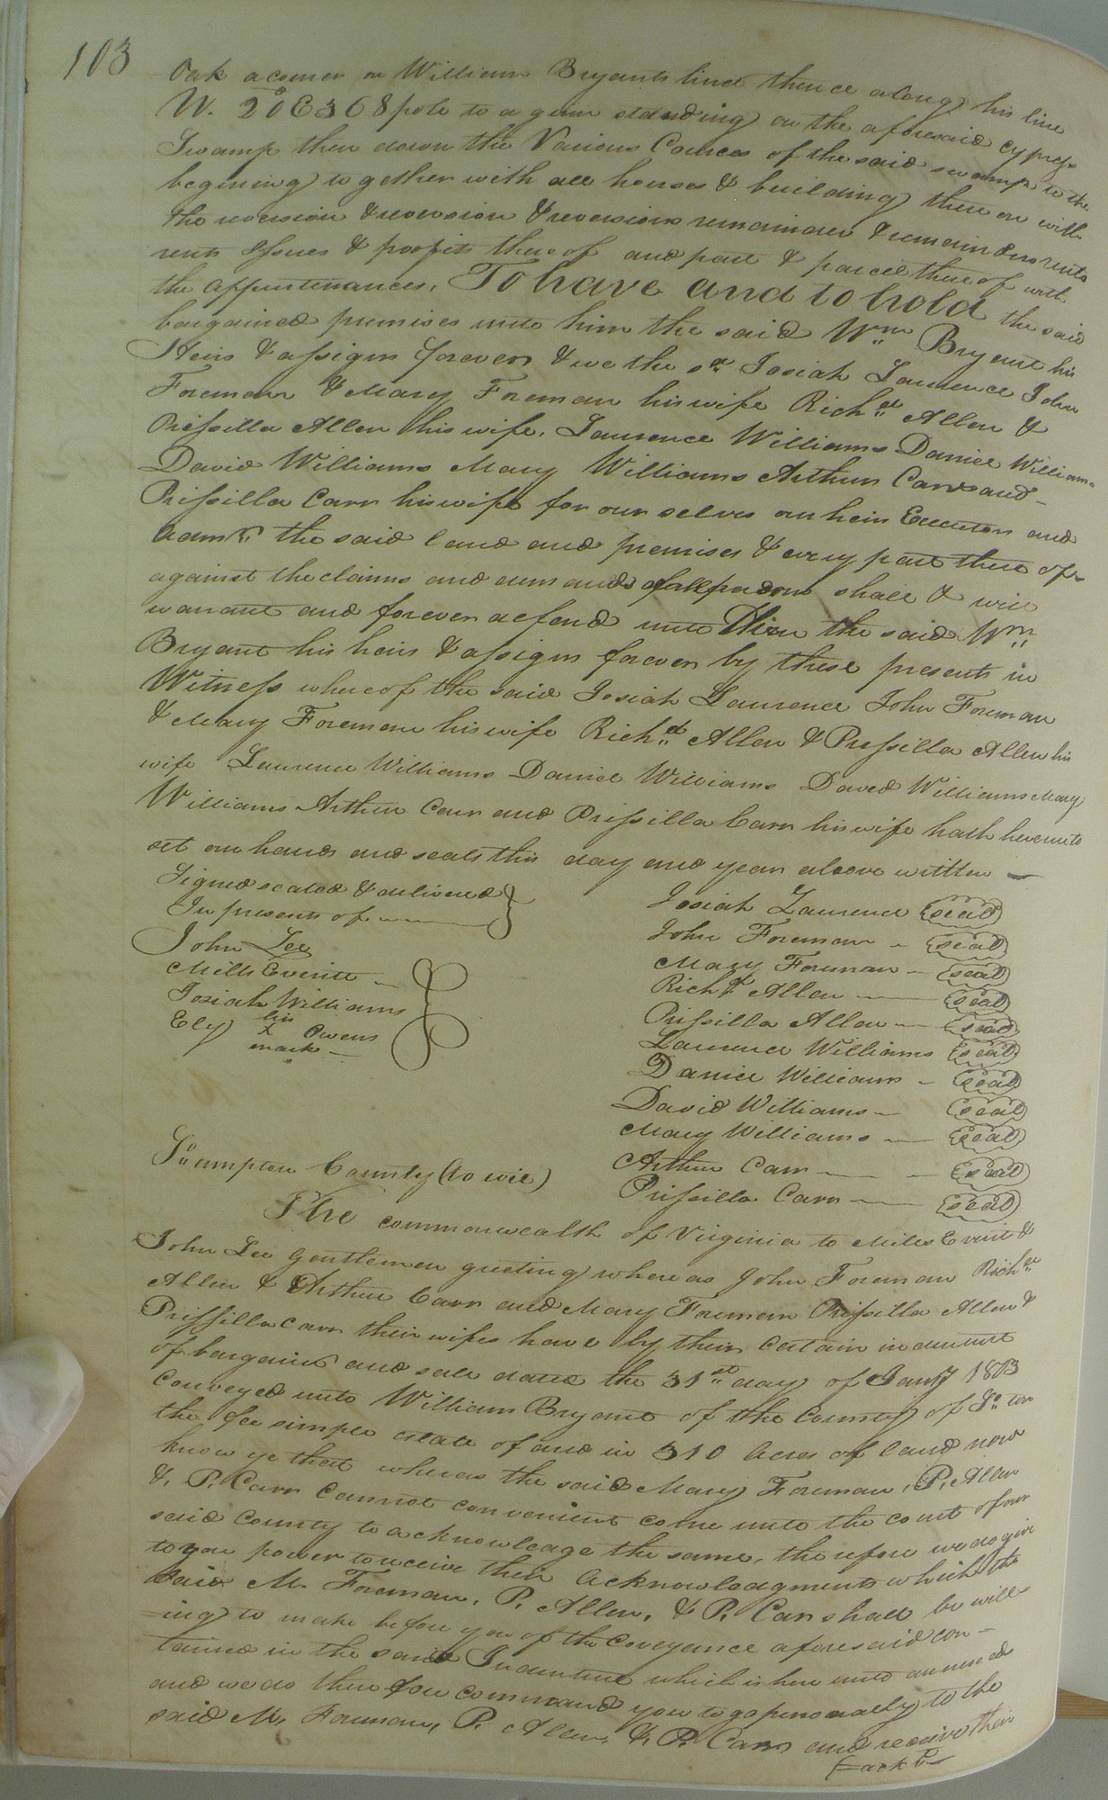 103
Oak a corner on William Bryants line thence along his line
W. 20 E 368 pole to a gum standing on the aforesaid cypress
Swamp then down the Various Cources of the said swamp to the
begining together with all houses & building there on with
the revesion & revesion & revesions remainder & remainders rents
rents Issues & proofits thereof and part & parcel there of with
the appurtenances. To have and to hold the said
bargained premises unto him the said Wm Bryant his
Heirs & assigns forever & we the sd Josiah Laurence John
Foreman & Mary Foreman his wife Richd Allen &
Prissilla Allen his wife. Laurence Williams Daniel Williams
David Williams Mary Williams Arthur Carr and
Prissilla Carr his wife for our selves our heirs Executors and
Admrs. the said land and premises & every part there of
against the claims and demands of all persons shall & will
warrant and forever defend unto Him the said Wm
Bryant his heirs & assigns forever by these presents in
Witness whereof the said Josiah Laurence John Foreman
& Mary Foreman his wife Richd Allen & Prissilla Allen his
wife Laurence Williams Daniel Williams David Williams Mary
Williams Arthur Carr and Prissilla Carr his wife hath hereunto
set our hands and seals this day and year above written
Signed sealed & delivered
In presents of
John Lee
Mills Everitt
Josiah Williams
Ely his x mark Owens
Josiah Laurence (seal)
John Foreman (seal)
Mary Foreman (seal)
Richd Allen (seal)
Prissilla Allen (seal)
Laurence Williams (seal)
Daniel Williams (seal)
David Williams (seal)
Mary Williams (seal)
Arthur Carr (seal)
Prissilla Carr (seal)
So umpton County (to wit)
The commonwealth of Virginia to Miles Everit &
John Lee Gentlemen greeting whereas John Foreman Richd
Allen & Arthur Carr and Mary Foreman Prissilla Allen &
Prissilla Carr their wifes have by their certain indenture
of bargain and sale dated the 31st day of Jany 1803
Conveyed unto William Bryant of the County of So ton
the fee simple estate of and in 310 Acres of land now
know ye that whereas the said Mary Foreman, P. Allen
&. P. Carr cannot convenient come unto the court of our
said County to acknowledge the same, therefore we do give
to you power to receive their acknowledgments which the
said M. Foreman, P. Allen, & P. Carr shall be will
=ing to make before you of the Coveyance aforesaid con=
tained in the said Indenture which is here unto annexed
and we do there fore command you to go personally to the
said M. Foreman, P. Allen, &. P. Carr and receive their